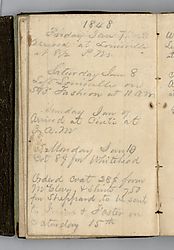 1848
Friday Jan 7
Arrived at Louisville
at 8½ P.M.
Saturday Jan 8
Left Louisville on
Fashion at 11 A.M.
Sunday Jan 9
Arrived at Cinti at
A.M
Monday Jan 10
Got for Whitehead
Orderd Coat 28$ from
McClary, & Shirts 7.50
for Sheppard to be sent
to & Foster on
Saturday 15th